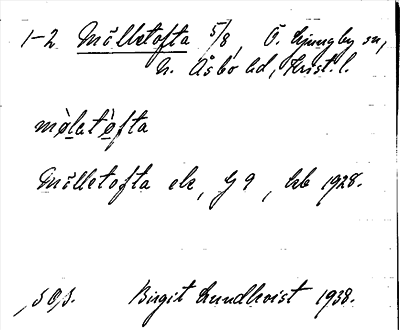 1-2 Mölletofta 5/8, Ö. Ljungby sn,
N. Åsbo hd, Krist. l.
mø̀letòfta
Mölletofta ek, G 9, kb 1928.
Birgit Lundkvist 1938.